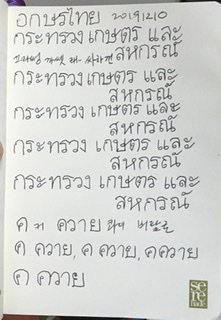 อักษรไทย 20191210
กระทรวงเกษตร และ
สหกรณ์
กระทรวงเกษตร และ
สหกรณ์
กระทรวงเกษตร และ
สหกรณ์
กระทรวงเกษตร และ
สหกรณ์
กระทรวงเกษตร และ
สหกรณ์
ค ควาย
ค ควาย, ค ควาย, ค ควาย
ค ควาย
se re nade